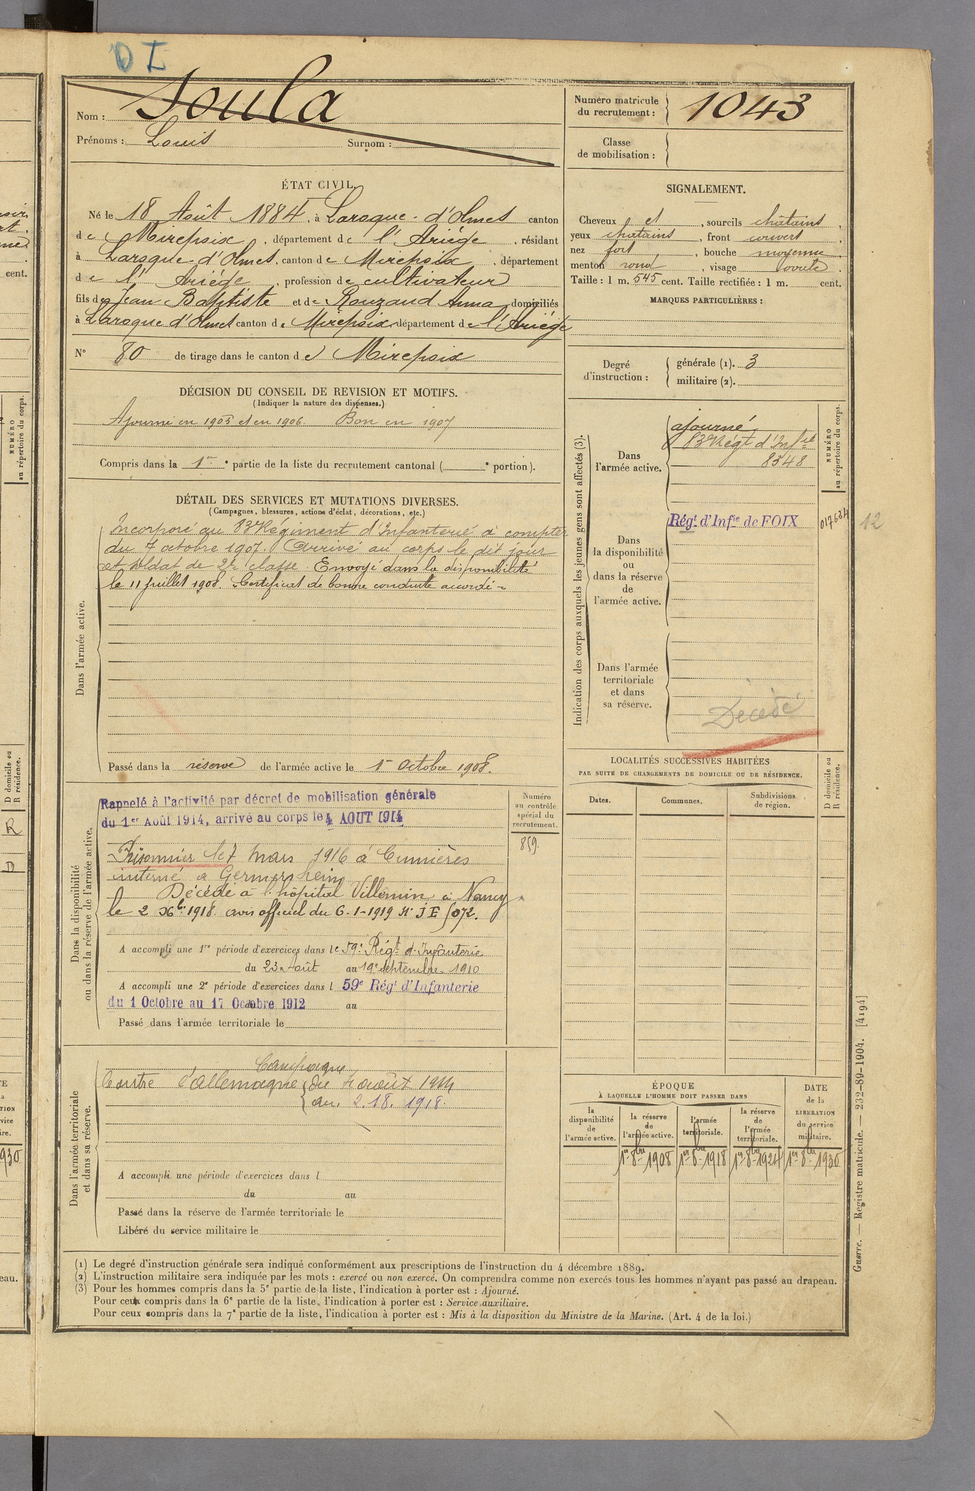 DI
Nom : Soula
Prénoms : Louis Surnom :
Numéro matricule du recrutement : 1043
Classe de mobilisation :
ÉTAT CIVIL.
Né le 18 Août 1884, à Laroque-d'Olmes canton
de Mirepoix, département de l'Ariége, résidant
à Laroque d'Olmes, canton de Mirepoix, département
de l'Ariége, profession de cultivateur
fils de Jean Baptiste et de Rouzaud Anna domiciliés
à Laroque d'Olmes canton de Mirepoix département de l'Ariége
N° 80 de tirage dans le canton de Mirepoix
SIGNALEMENT.
Cheveux et, sourcils chatains,
yeux chatains, front couvert,
nez fort, bouche moyenne,
menton rond, visage ovale.
Taille : 1 m. 545 cent. Taille rectifiée : 1 m. cent.
MARQUES PARTICULIÈRES :
Degré d'instruction : générale (1). 3
militaire (2).
DÉCISION DU CONSEIL DE REVISION ET MOTIFS.
(Indiquer la nature des dispenses.)
Ajourné en 1905 et en 1906. Bon en 1907
Compris dans la 1re partie de la liste du recrutement cantonal ( e portion).
DÉTAIL DES SERVICES ET MUTATIONS DIVERSES.
(Campagnes, blessures, actions d'éclat, décorations, etc.)
Dans l'armée active.
Incorporé au 83e Régiment d'Infanterie à compter
du 7 octobre 1907. Arrivé au corps le dit jour
et soldat de 2e classe. Envoyé dans la disponibilité
le 11 juillet 1908. Certificat de bonne conduite accordé
Passé dans la réserve de l'armée active le 1er Octobre 1908.
Indication des corps auxquels les jeunes gens sont affectés (3).
NUMÉRO au répertoire du corps.
Dans l'armée active.
ajourné
83e Régt d'Infie
8348
Dans la disponibilité ou dans la réserve de l'armée active.
Régt d'Infie de FOIX
017684
12
Dans l'armée territoriale et dans sa réserve.
Décédé
LOCALITÉS SUCCESSIVES HABITÉES
PAR SUITE DE CHANGEMENTS DE DOMICILE OU DE RÉSIDENCE.
Dates. Communes. Subdivisions de région.
D domicile ou R résidence.
Dans la disponibilité ou dans la réserve de l'armée active.
Numéro au contrôle spécial du recrutement.
859
Rappelé à l'activité par décret de mobilisation générale
du 1er Août 1914, arrivé au corps le 4 AOUT 1914
Prisonnier le 7 mars 1916 à Cumières
interné à Germersheim
Décédé à l'hôpital Villemin à Nancy
le 2 Xbre 1918. avis officiel du 6-1-1919 N° JE 5072.
A accompli une 1re période d'exercices dans le 59e Régt d'Infanterie
du 23 Août au 19 septembre 1910
A accompli une 2e période d'exercices dans l 59e Régt d'Infanterie
du 1 Octobre au 17 Octobre 1912 au
Passé dans l'armée territoriale le
Dans l'armée territoriale et dans sa réserve.
Campagne
Contre l'allemagne du 4 août 1914
au 2.18.1918.
A accompli une période d'exercices dans l
du au
Passé dans la réserve de l'armée territoriale le
Libéré du service militaire le
ÉPOQUE
À LAQUELLE L'HOMME DOIT PASSER DANS
la disponibilité de l'armée active.
la réserve de l'armée active.
l'armée territoriale.
la réserve de l'armée territoriale.
DATE de la LIBÉRATION du service militaire.
1er 8bre 1908 1er 8bre 1918 1er 8bre 1924 1er 8bre 1930
(1) Le degré d'instruction générale sera indiqué conformément aux prescriptions de l'instruction du 4 décembre 1889.
(2) L'instruction militaire sera indiquée par les mots : exercé ou non exercé. On comprendra comme non exercés tous les hommes n'ayant pas passé au drapeau.
(3) Pour les hommes compris dans la 5e partie de la liste, l'indication à porter est : Ajourné.
Pour ceux compris dans la 6e partie de la liste, l'indication à porter est : Service auxiliaire.
Pour ceux compris dans la 7e partie de la liste, l'indication à porter est : Mis à la disposition du Ministre de la Marine. (Art. 4 de la loi.)
Guerre. — Registre matricule. — 232-89-1904. [4194]